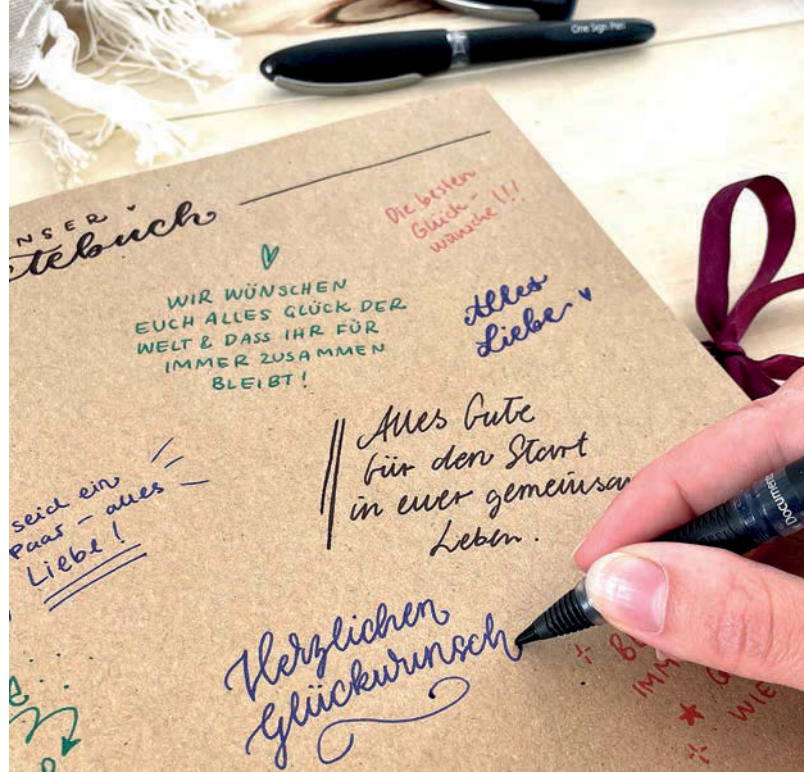 One Sign Pen
NSER
tebuch
Die besten
Glück-
wünsche!!!
WIR WÜNSCHEN
EUCH ALLES GLÜCK DER
WELT & DASS IHR FÜR
IMMER ZUSAMMEN
BLEIBT!
Alles
Liebe
Alles Gute
für den Start
in euer gemeinsam
Leben.
seid ein
Paar – alles
Liebe!
Document
Herzlichen
Glückwunsch
IMM
WIE